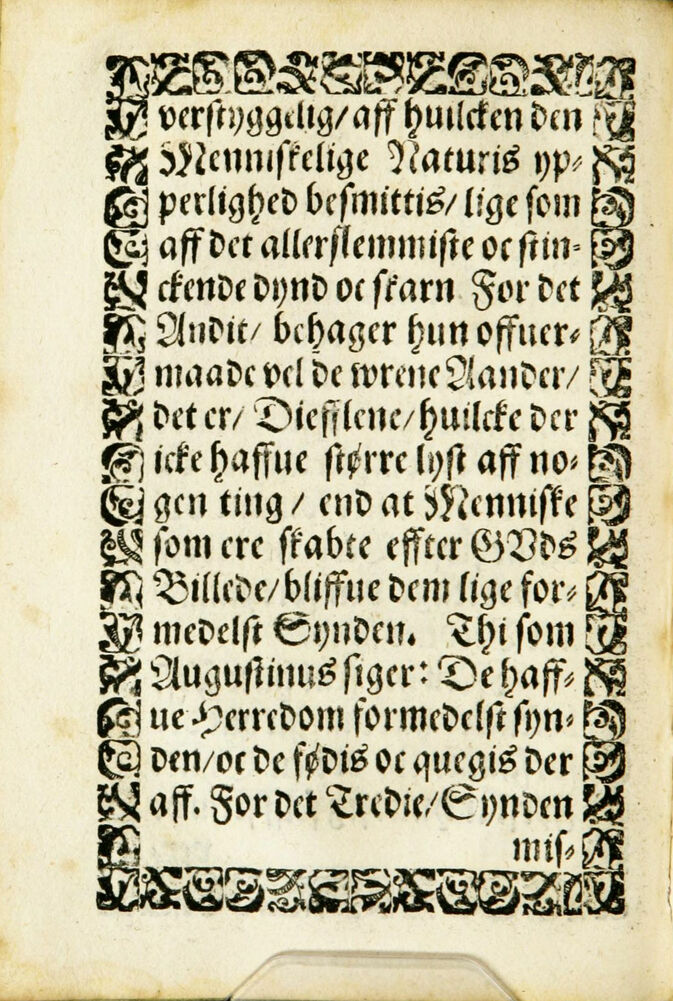 verstyggelig/ aff huilcken den
Menniskelige Naturis yp⸗
perlighed besmittis/ lige som
aff det allerslemmiste oc stin⸗
ckende dynd oc skarn For det
Andit/ behager hun offuer⸗
maade vel de wrene Aander/
det er/ Diefflene/ huilcke der
icke haffue større lyst aff no⸗
gen ting / end at Menniske
som ere skabte effter GVds
Billede/ bliffue dem lige for⸗
medelst Synden. Thi som
Augustinus siger: De haff⸗
ue Herredom formedelst syn⸗
den/ oc de fødis oc quegis der
aff. For det Tredie/ Synden
mis⸗